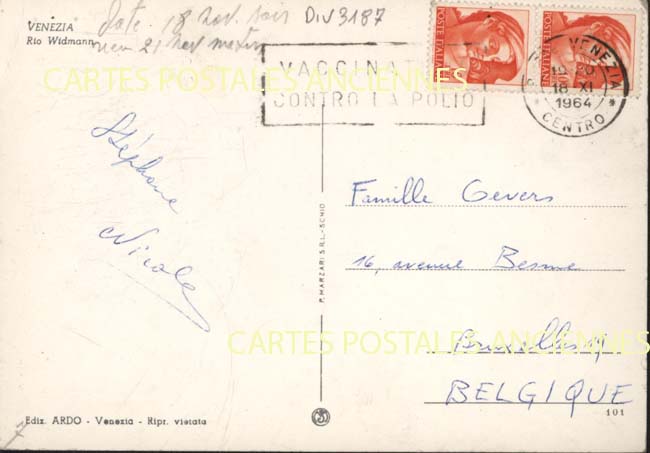 VENEZIA
Rio Widmann
Date 18 nov. soir
21 nov matin
DIV3187
POSTE ITALIANE
POSTE ITALIANE
VACCINAT
CONTRO LA POLIO
VENEZIA
19-20
18 XI
1964
CENTRO
CARTES POSTALES ANCIENNES
Stéphane
Nicole
Famille Gevers
16, avenue Besme
Bruxelles
BELGIQUE
CARTES POSTALES ANCIENNES
P. MARZARI S.R.L.-SCHIO
Ediz. ARDO - Venezia - Ripr. vietata
101